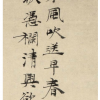 風吹送早春
憑欄清興欲